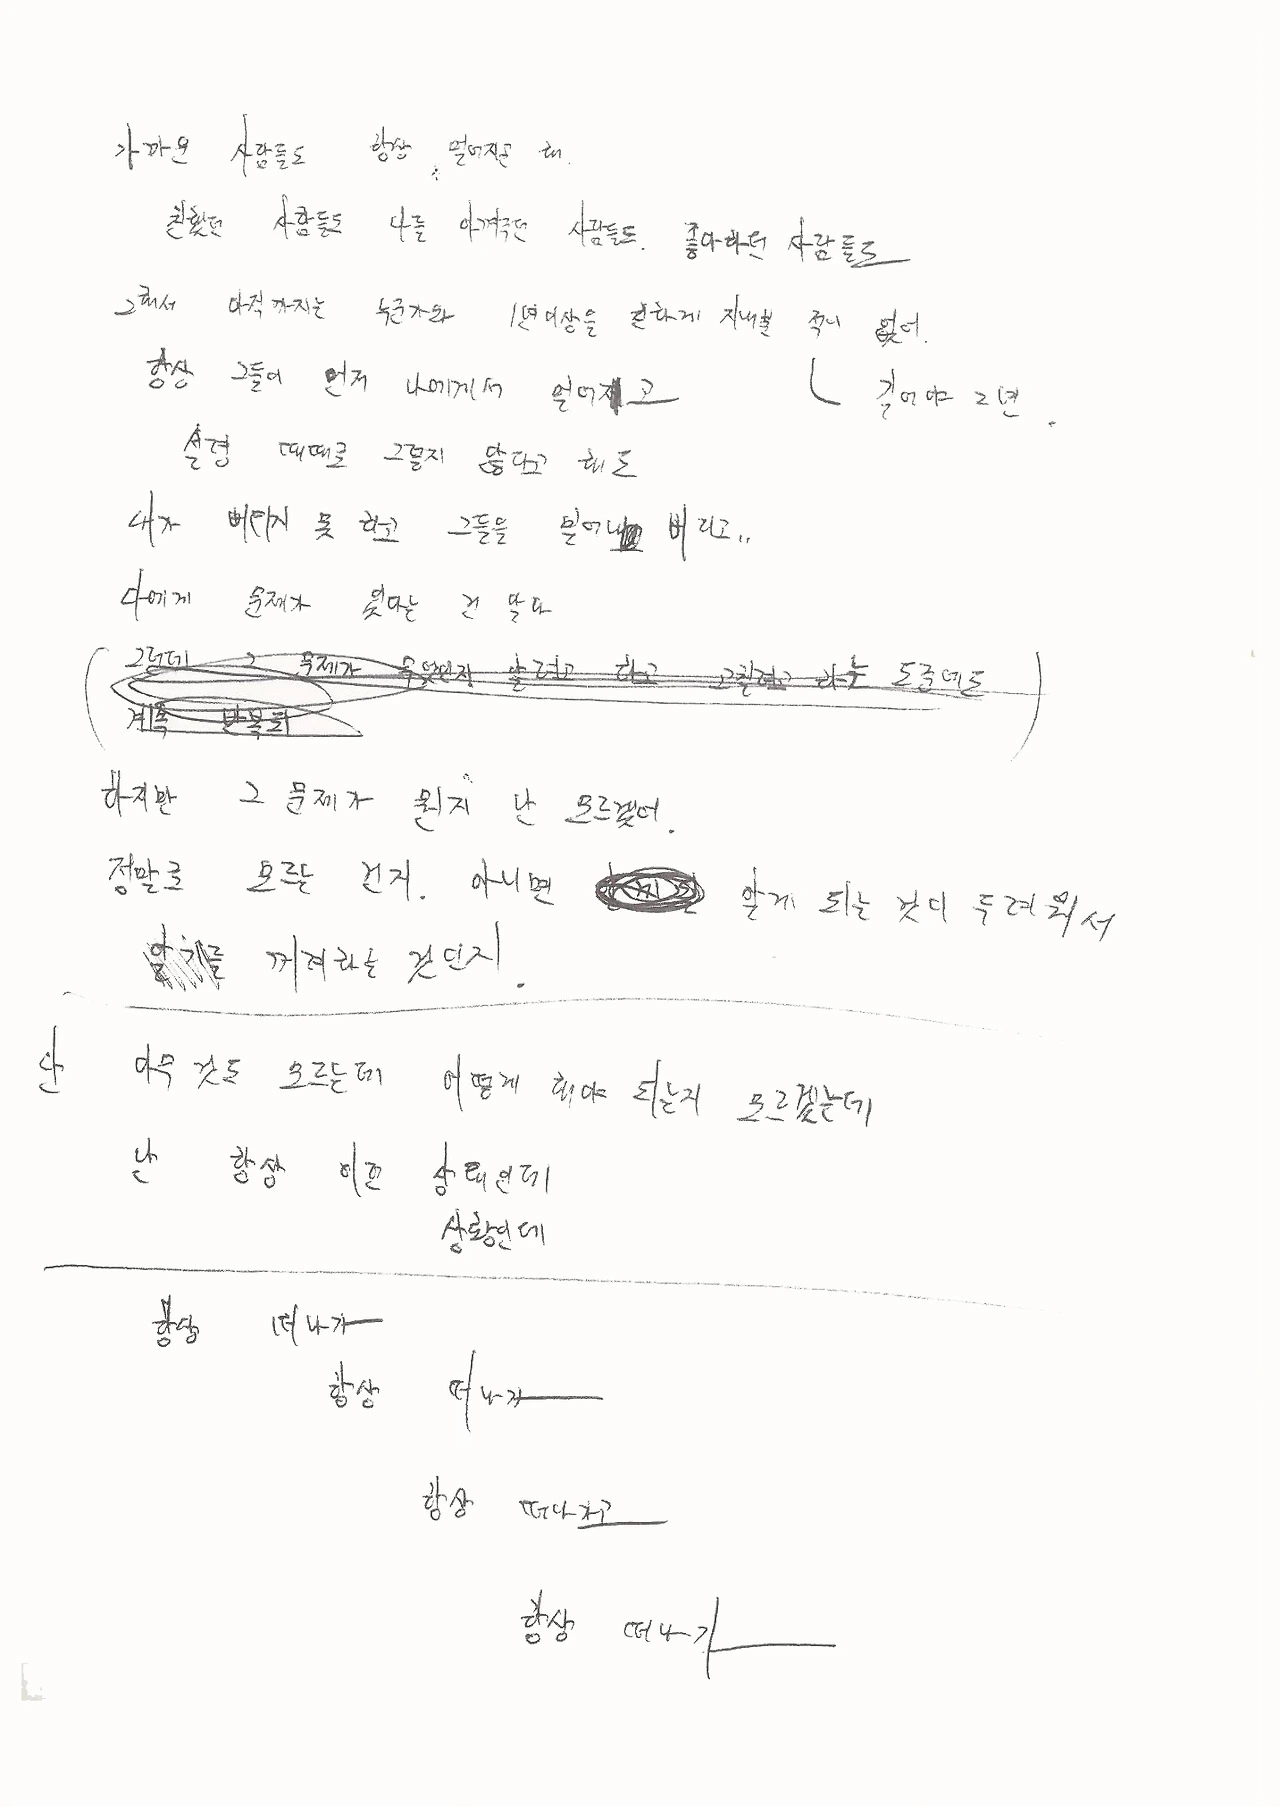 가까운 사람들도 항상 멀어지곤 해.
친했던 사람들도 나를 아껴주던 사람들도. 좋아하던 사람들도
그래서 아직까지는 누군가와 1년이상을 친하게 지내본 적이 없어.
항상 그들이 먼저 나에게서 멀어지고 길어야 2년.
설령 때때로 그렇지 않다고 해도
내가 버티지 못 하고 그들을 밀어내 버리고..
나에게 문제가 있다는 건 알다
그런데 그 문제가 무엇인지 알려고 하고 고칠려고 하는 도중에도
계속 반복돼
하지만 그 문제가 뭔지 난 모르겠어.
정말로 모르는 건지. 아니면 알게 되는 것이 두려워서
알기를 꺼려하는 것인지.
난 아무 것도 모르는데 어떻게 해야 되는지 모르겠는데
난 항상 이런 상태인데
상황인데
항상 떠나가
항상 떠나가
항상 떠나가고
항상 떠나가